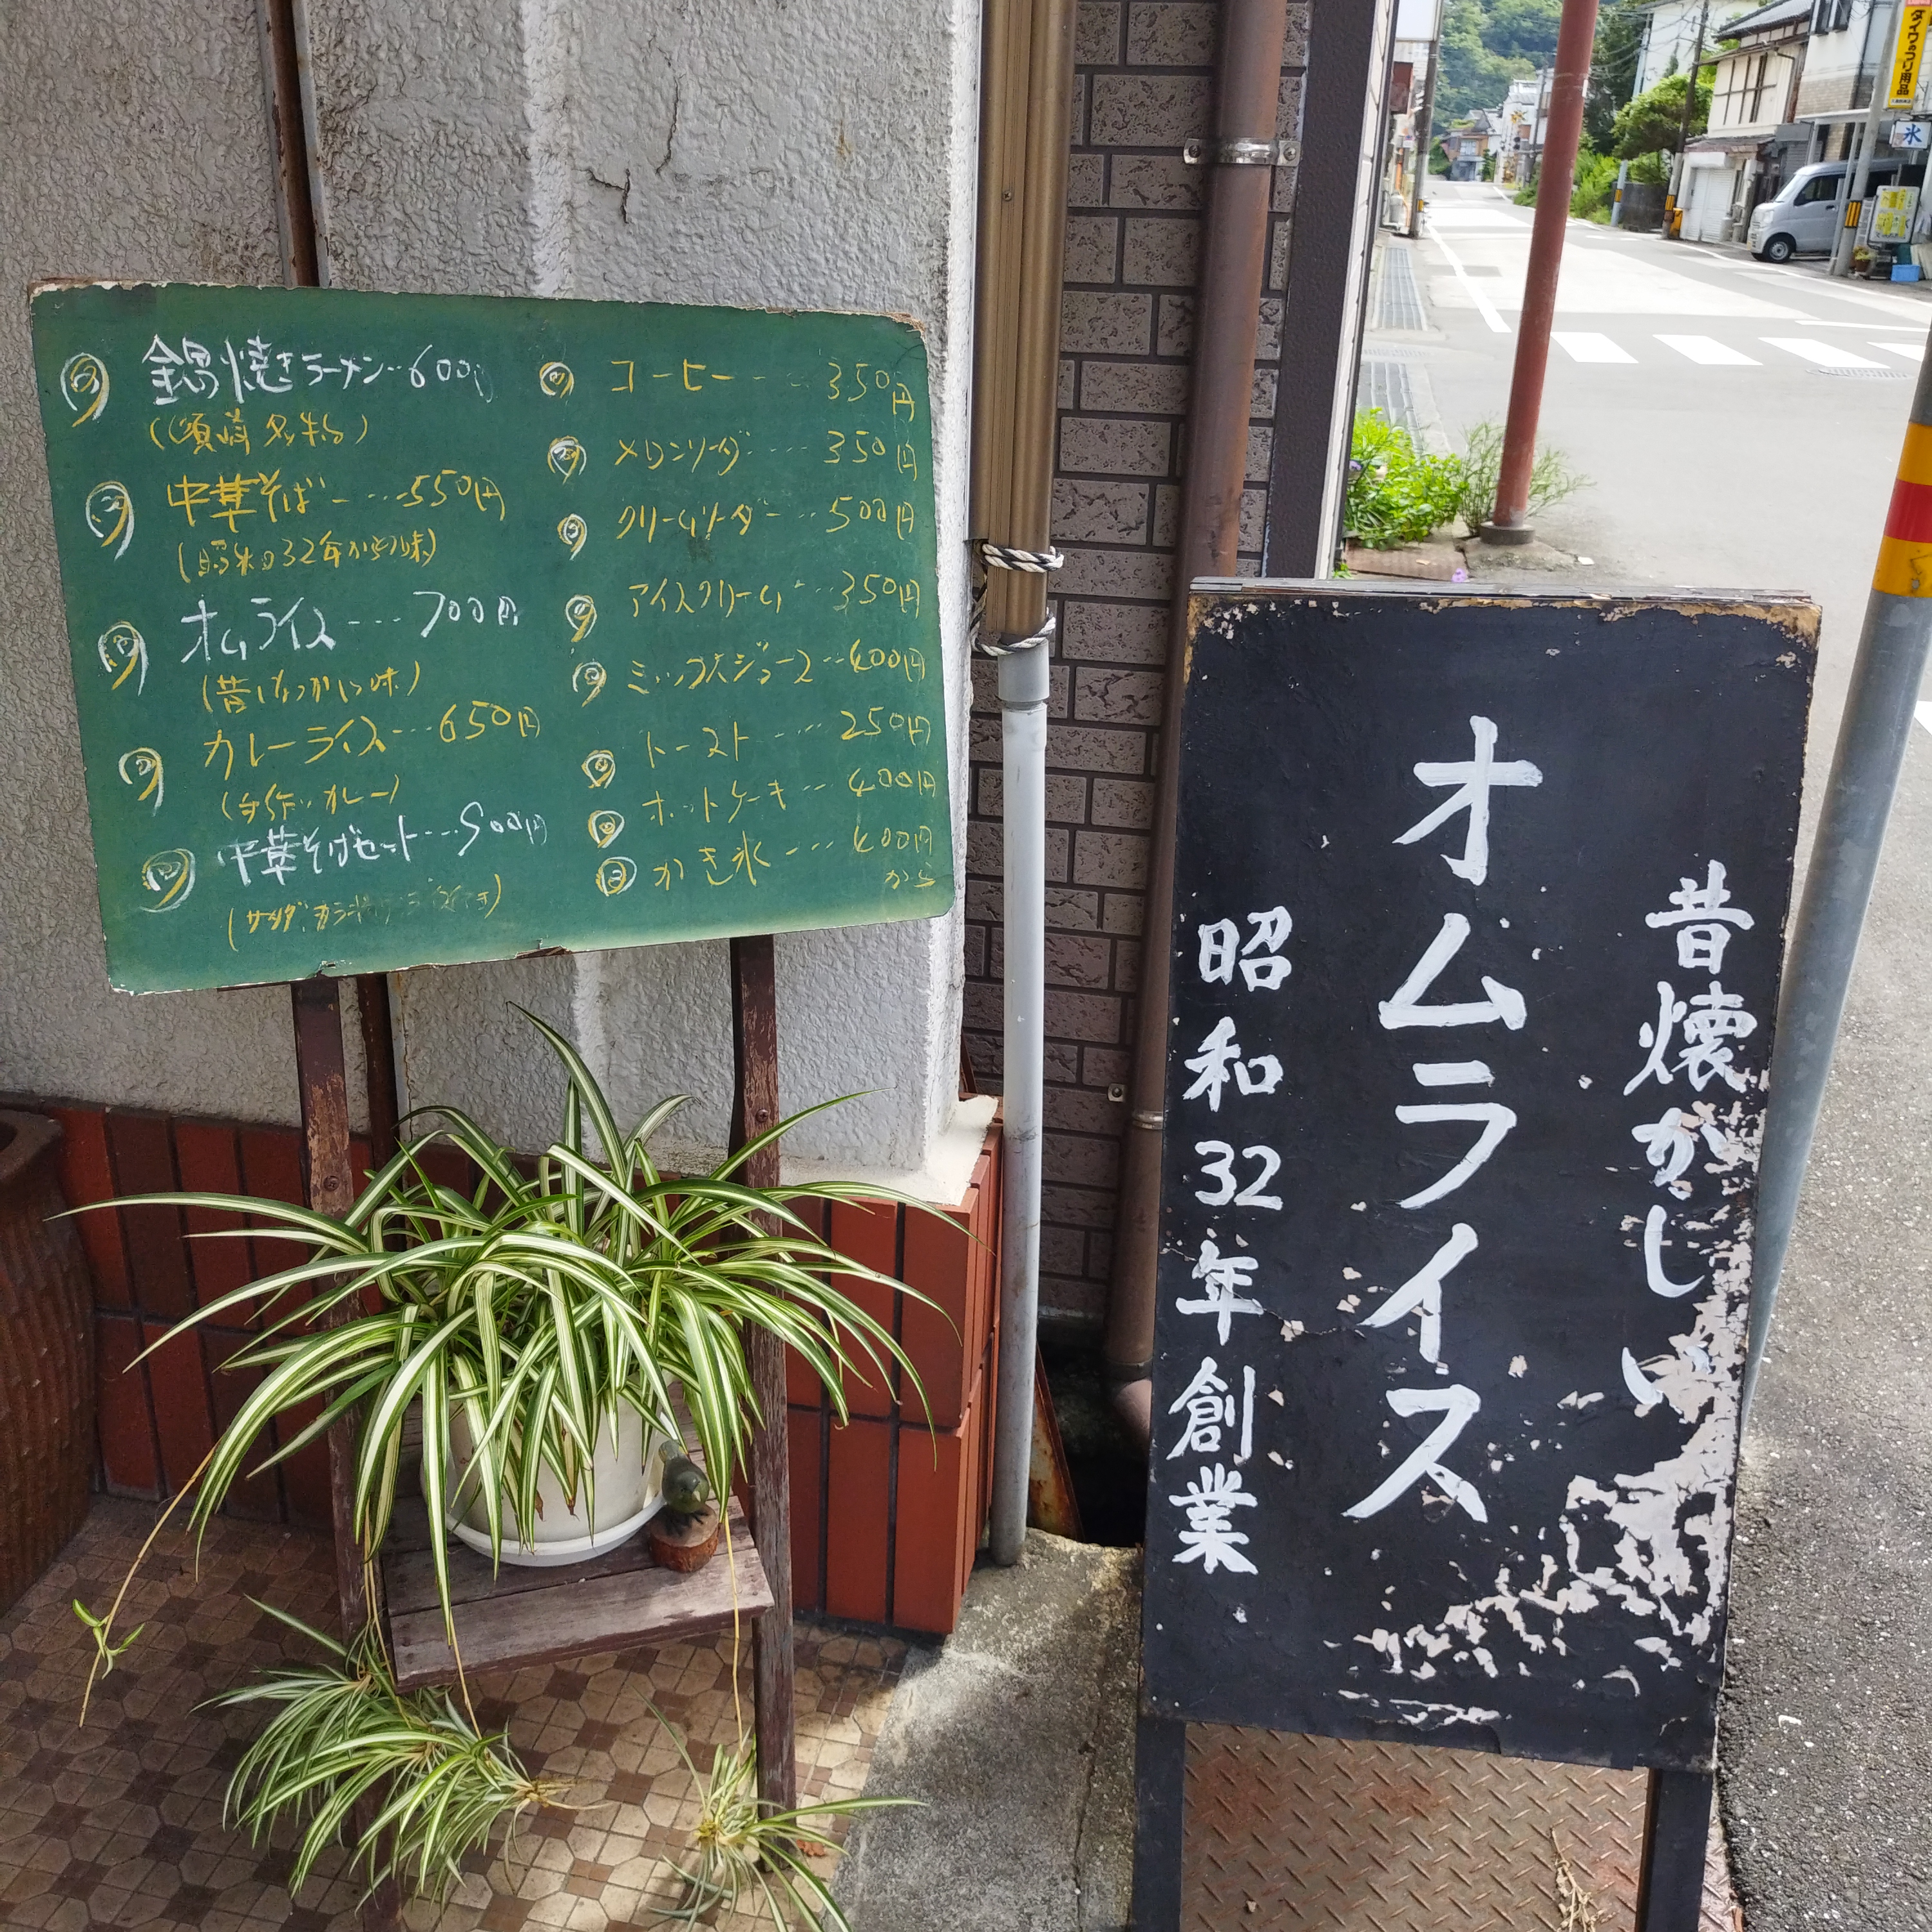 鍋焼きラーメン‥600円
(須崎名物)
中華そば‥‥550円
(昭和32年からの味)
オムライス‥‥700円
(昔なつかしい味)
カレーライス‥‥650円
(手作りカレー)
中華そばセット‥‥900円
コーヒー‥‥350円
メロンソーダ‥‥350円
クリームソーダ‥‥500円
アイスクリーム‥‥350円
ミックスジュース‥‥400円
トースト‥‥250円
ホットケーキ‥‥400円
かき氷‥‥400円
から
昔懐かしい
オムライス
昭和32年創業
ダイワのつり用品
氷